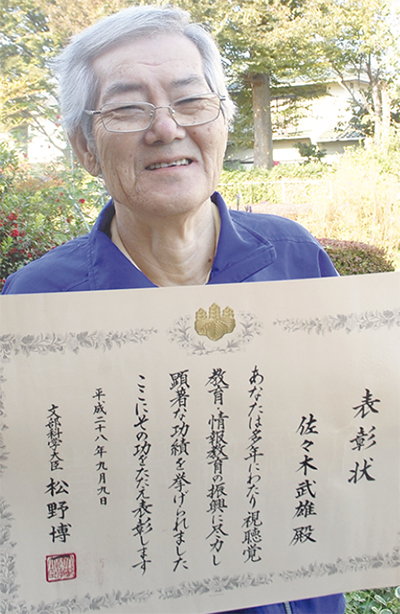 表彰状
佐々木武雄 殿
あなたは多年にわたり視聴覚
教育・情報教育の振興に尽力し
顕著な功績を挙げられました
ここにその功をたたえ表彰します
平成二十八年九月九日
文部科学大臣 松野博一